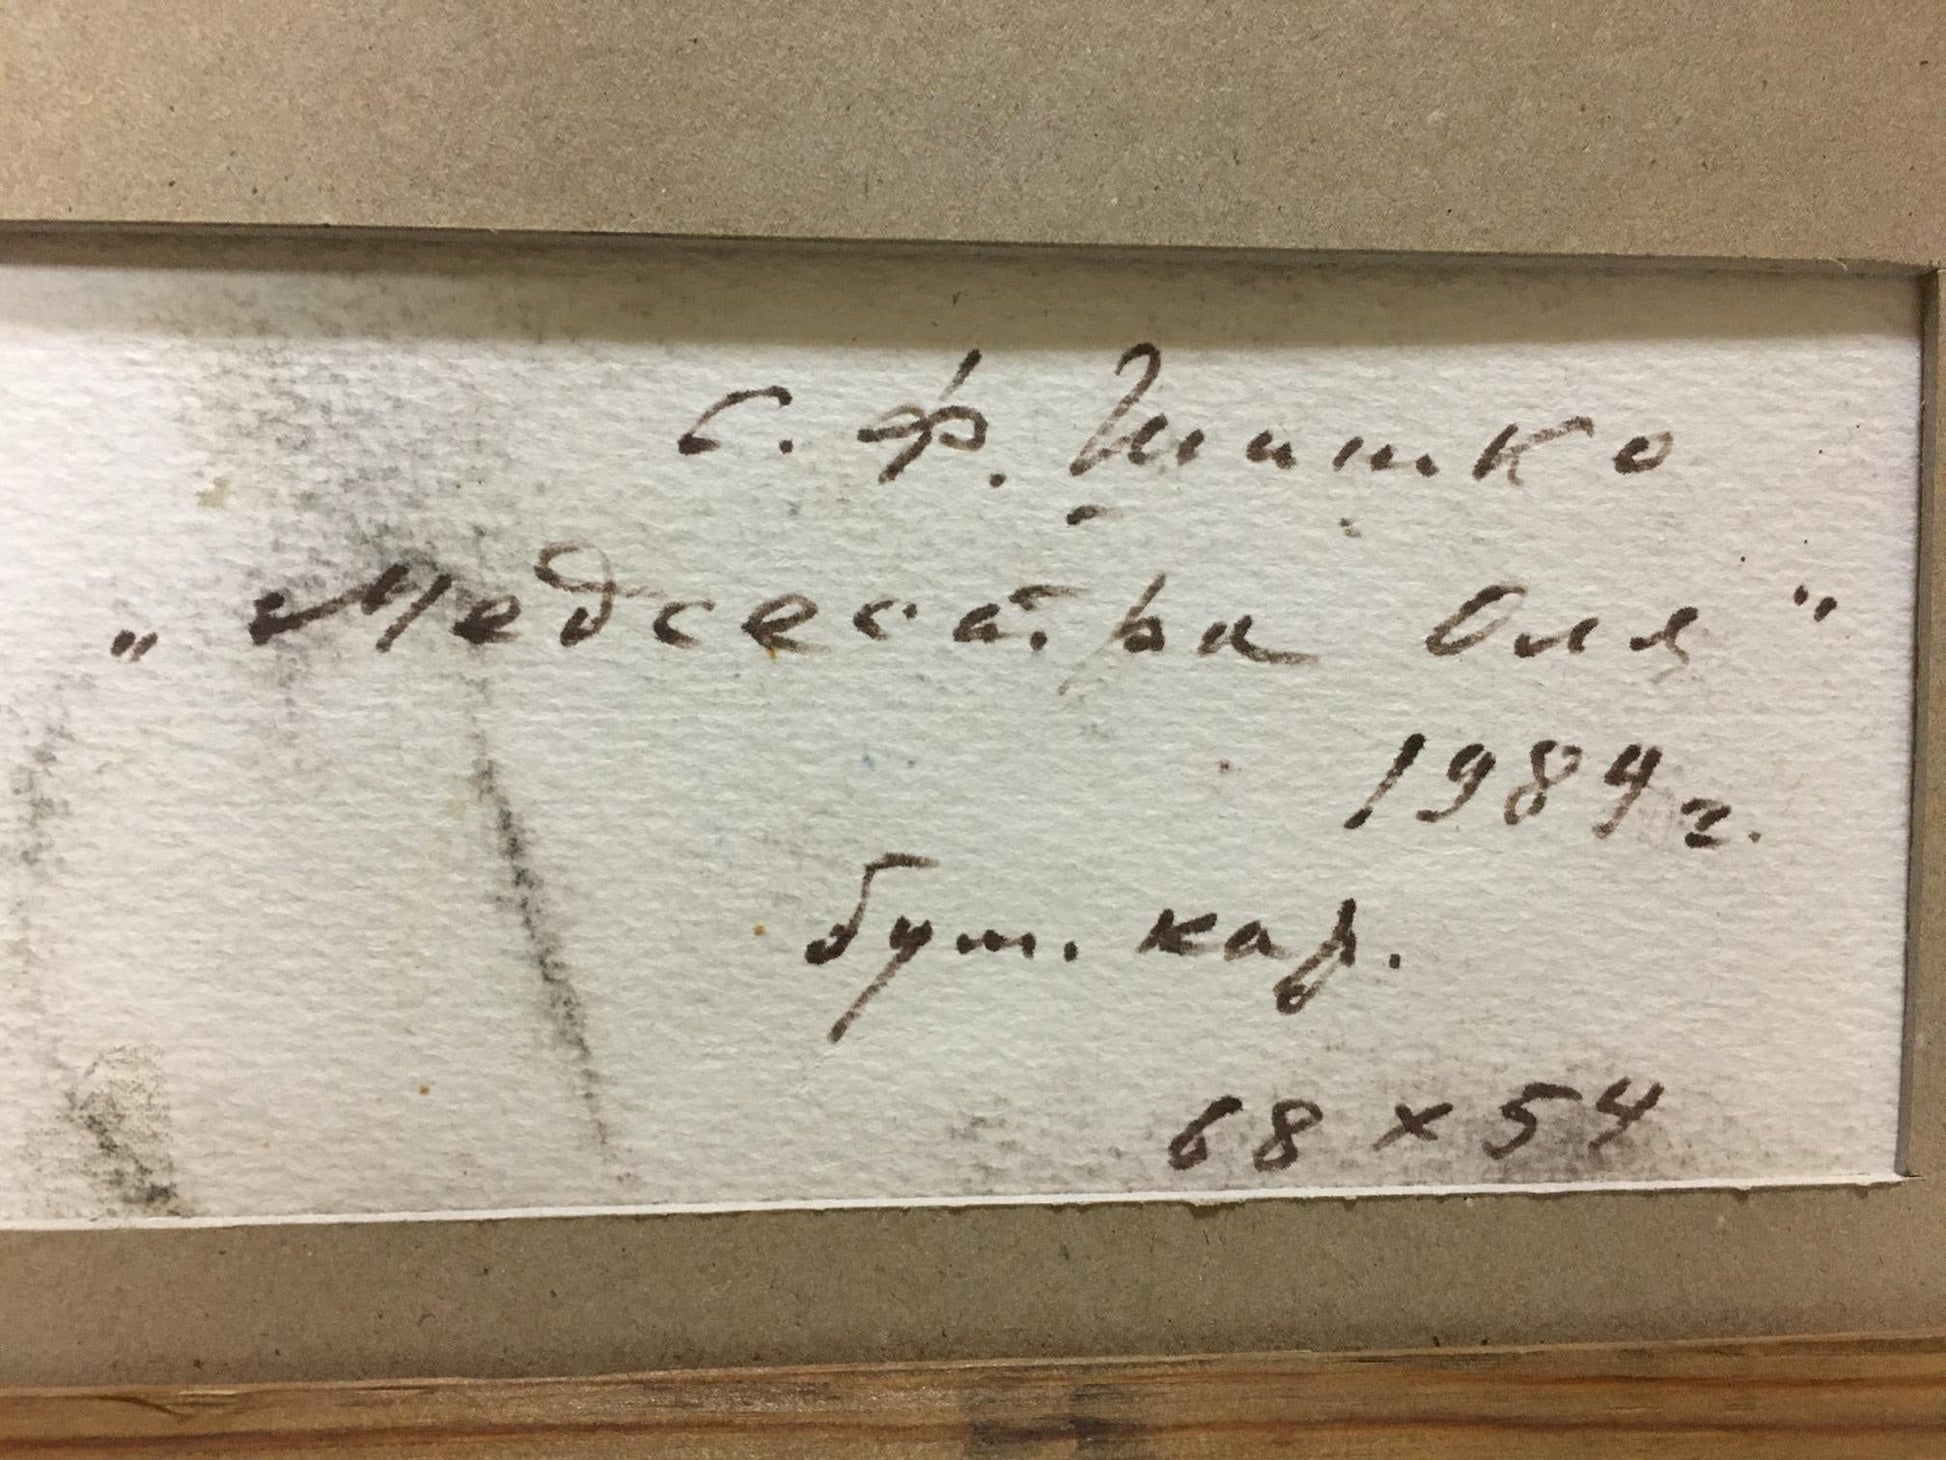 С. Ф. Шишко
„Медсестра Оля"
1984 г.
бум. кар.
68 x 54